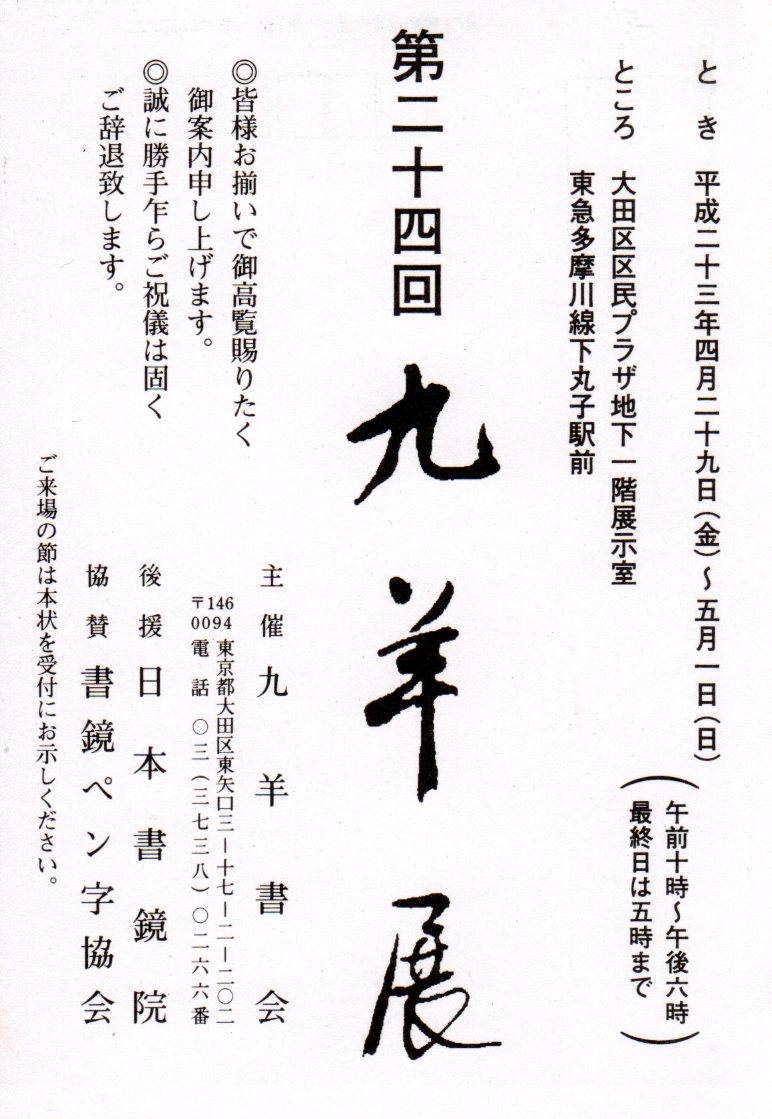 とき 平成二十三年四月二十九日(金)〜五月一日(日)
(午前十時〜午後六時
最終日は五時まで)
ところ 大田区区民プラザ地下一階展示室
東急多摩川線下丸子駅前
第二十四回 九羊展
◎皆様お揃いで御高覧賜りたく
御案内申し上げます。
◎誠に勝手乍らご祝儀は固く
ご辞退致します。
主催 九羊書会
〒146
0094 東京都大田区東矢口三ー十七ー二ー二〇二
電話 〇三(三七三八)〇二六六番
後援 日本書鏡院
協賛 書鏡ペン字協会
ご来場の節は本状を受付にお示しください。